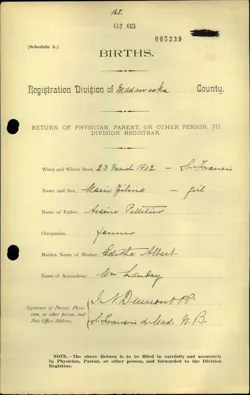 168.
02 03
005339
[Schedule A.]
BIRTHS.
Registration Division of Madawaska County.
RETURN OF PHYSICIAN, PARENT, OR OTHER PERSON, TO
DIVISION REGISTRAR.
When and Where Born, 23 March 1902 – St Francis
Name and Sex, Marie – girl
Name of Father, Pelletier
Occupation, farmer
Maiden Name of Mother, Edithe Albert
Name of Accoucheur, Mrs Landry
Signature of Parent, Physician, or other person, and Post Office Address,
J. N. Dumont PP.
St Francis de Mad. N. B.
NOTE.—The above Return is to be filled in carefully and accurately
by Physician, Parent, or other person, and forwarded to the Division
Registrar.